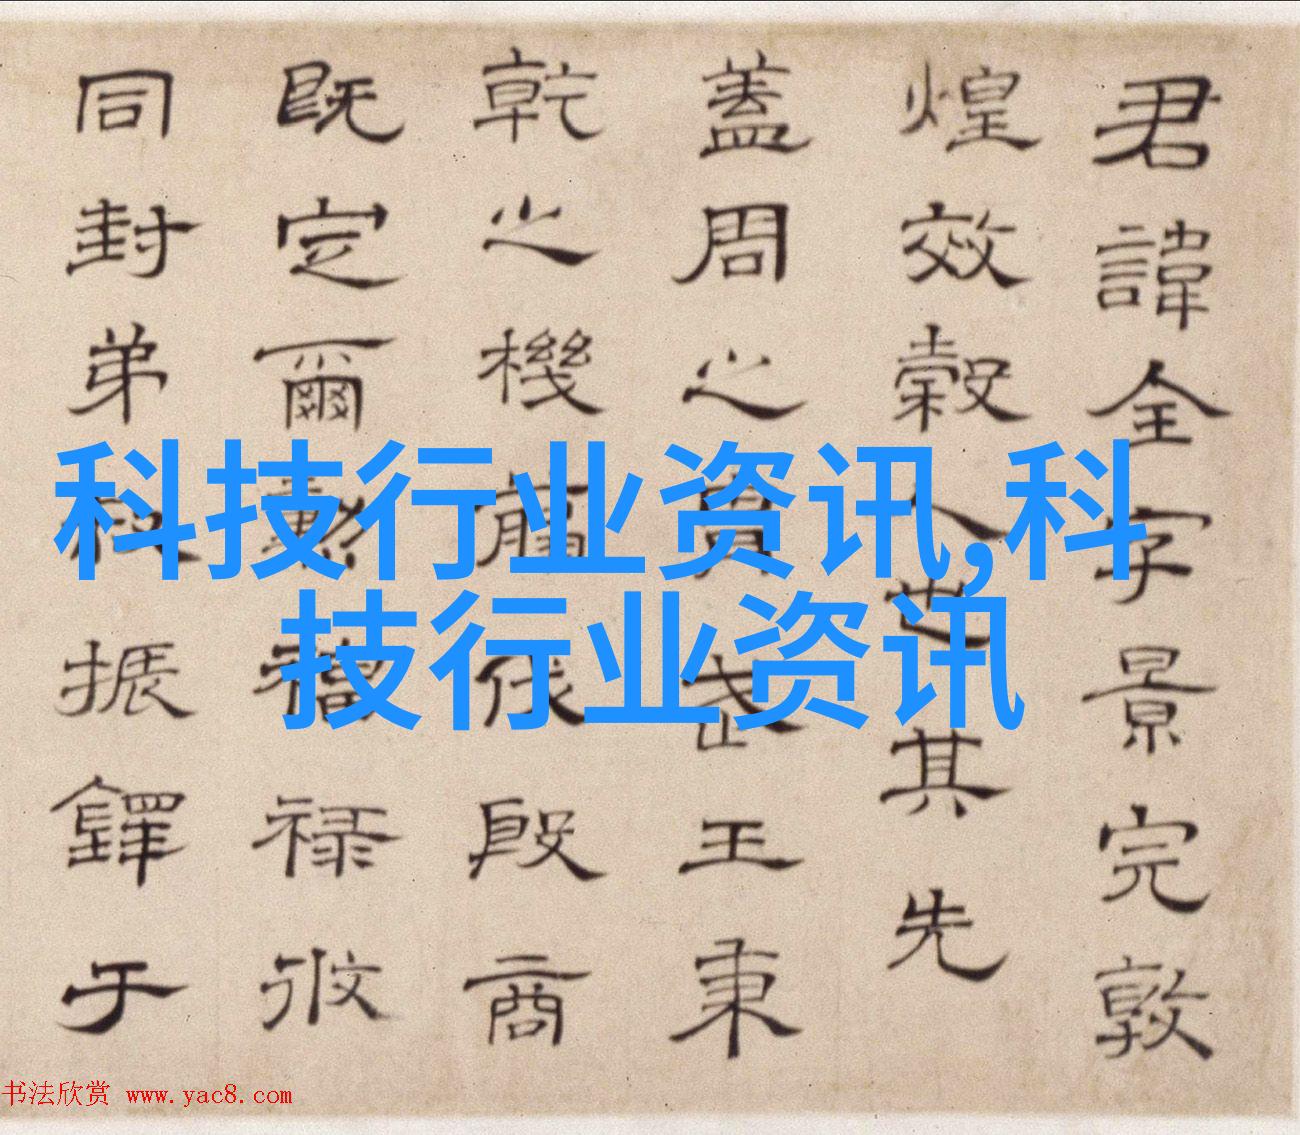 君諱全字景完敦
煌效穀人也其先
蓋周之胄武王秉
乾之機翦伐殷商
既定爾勲福祿攸
同封弟叔振鐸于
科技行业资讯,科
技行业资讯
书法欣赏 www.yac8.com